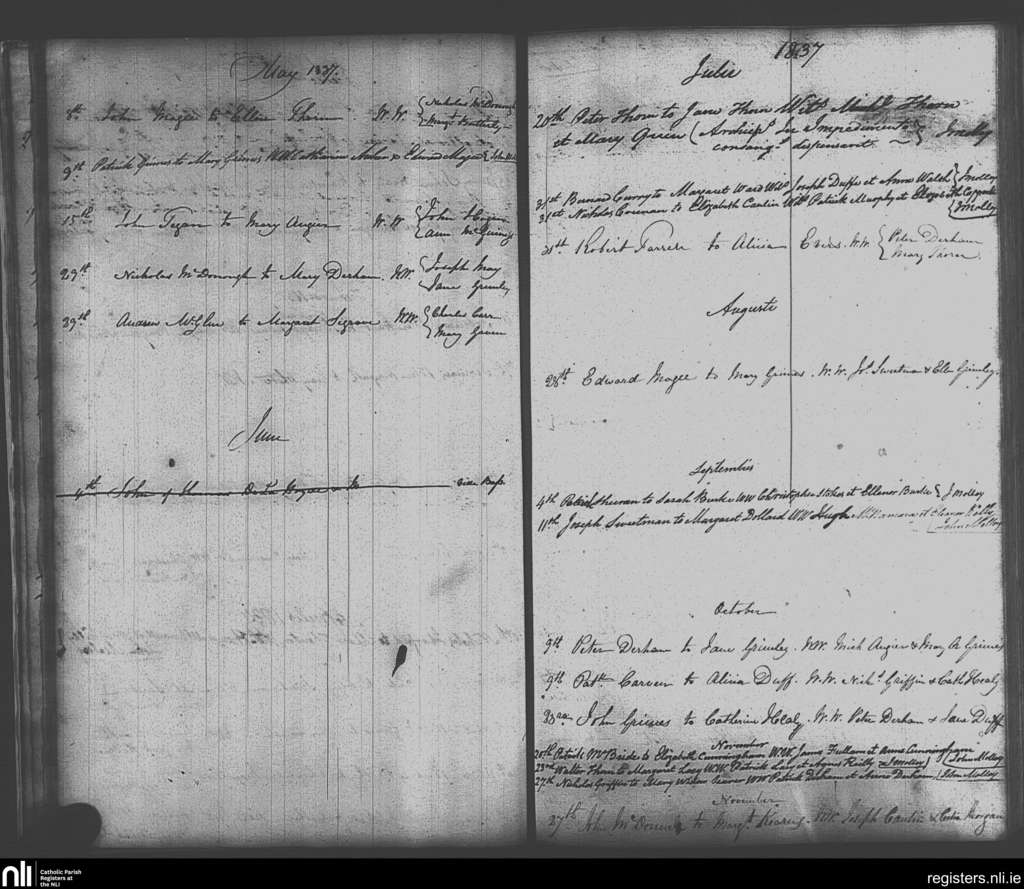 May 1837.
8th John Magee to Ellen Thorn W.W. { Nicholas McDonough
Margt Butterly
9th Patrick Grimes to Mary Grimes WW Catharine Nolan & Edward Magee { John
15th John Fegan to Mary Angier W.W { John Hogan
Ann McGuinness
29th Nicholas McDonough to Mary Derham. WW. { Joseph May
Jane Grimley
39th Andrew McGlew to Margaret Segrave WW. { Charles Carr
Mary Green
June
4th John & Thomas De La Hogue & Mc vide Baps
1837
Julii
20th Peter Thorn to Jane Thorn Wits Michl Thorn
et Mary Green ( Archiepo In Impedimento } Jmolloy
consangs dispensavit.
31st Bernard Curry to Margaret Ward Wits Joseph Duffe et Anne Walsh { Jmolloy
31st Nicholas Corcoran to Elizabeth Cantin Wits Patrick Murphy et Elizabeth Coppock
{ Jmolloy
31st Robert Farrell to Alicia Evers. WW. { Peter Derham
Mary
Auguste
28th Edward Magee to Mary Grimes. W.W. Jos. Sweetman & Ellen Grimley.
Septembris
4th Patrick Sheeran to Sarah Burke WW Christopher Stokes et Ellenor Burke } J Molloy
11th Joseph Sweetman to Margaret Dollard WW Hugh et Eleanor Kelly
( John Molloy
October
9th Peter Derham to Jane Grimley. WW. Mich Angier & Mary A Grimes
9th Patk Carven to Alicia Duff. W.W. Nichs Griffin & Cath Healy
23rd John Grimes to Catherine Healy. W.W. Peter Derham & Jane Duff
November
20th Patrick McBride to Elizabeth Cunningham WW. James Fullam et Anne Cunningham
( John Molloy
23rd Walter Thorn to Margaret Lacy WW. Patrick Lacy et Agnes Reilly (Jmolloy)
27th Nicholas Griffin to Mary WW Patrick Derham et Anne Derham } John Molloy
November
27th John McDonnell to Margt Kearns. WW. Joseph Cantin & Celia Morgan
nli Catholic Parish
Registers at
the NLI
registers.nli.ie